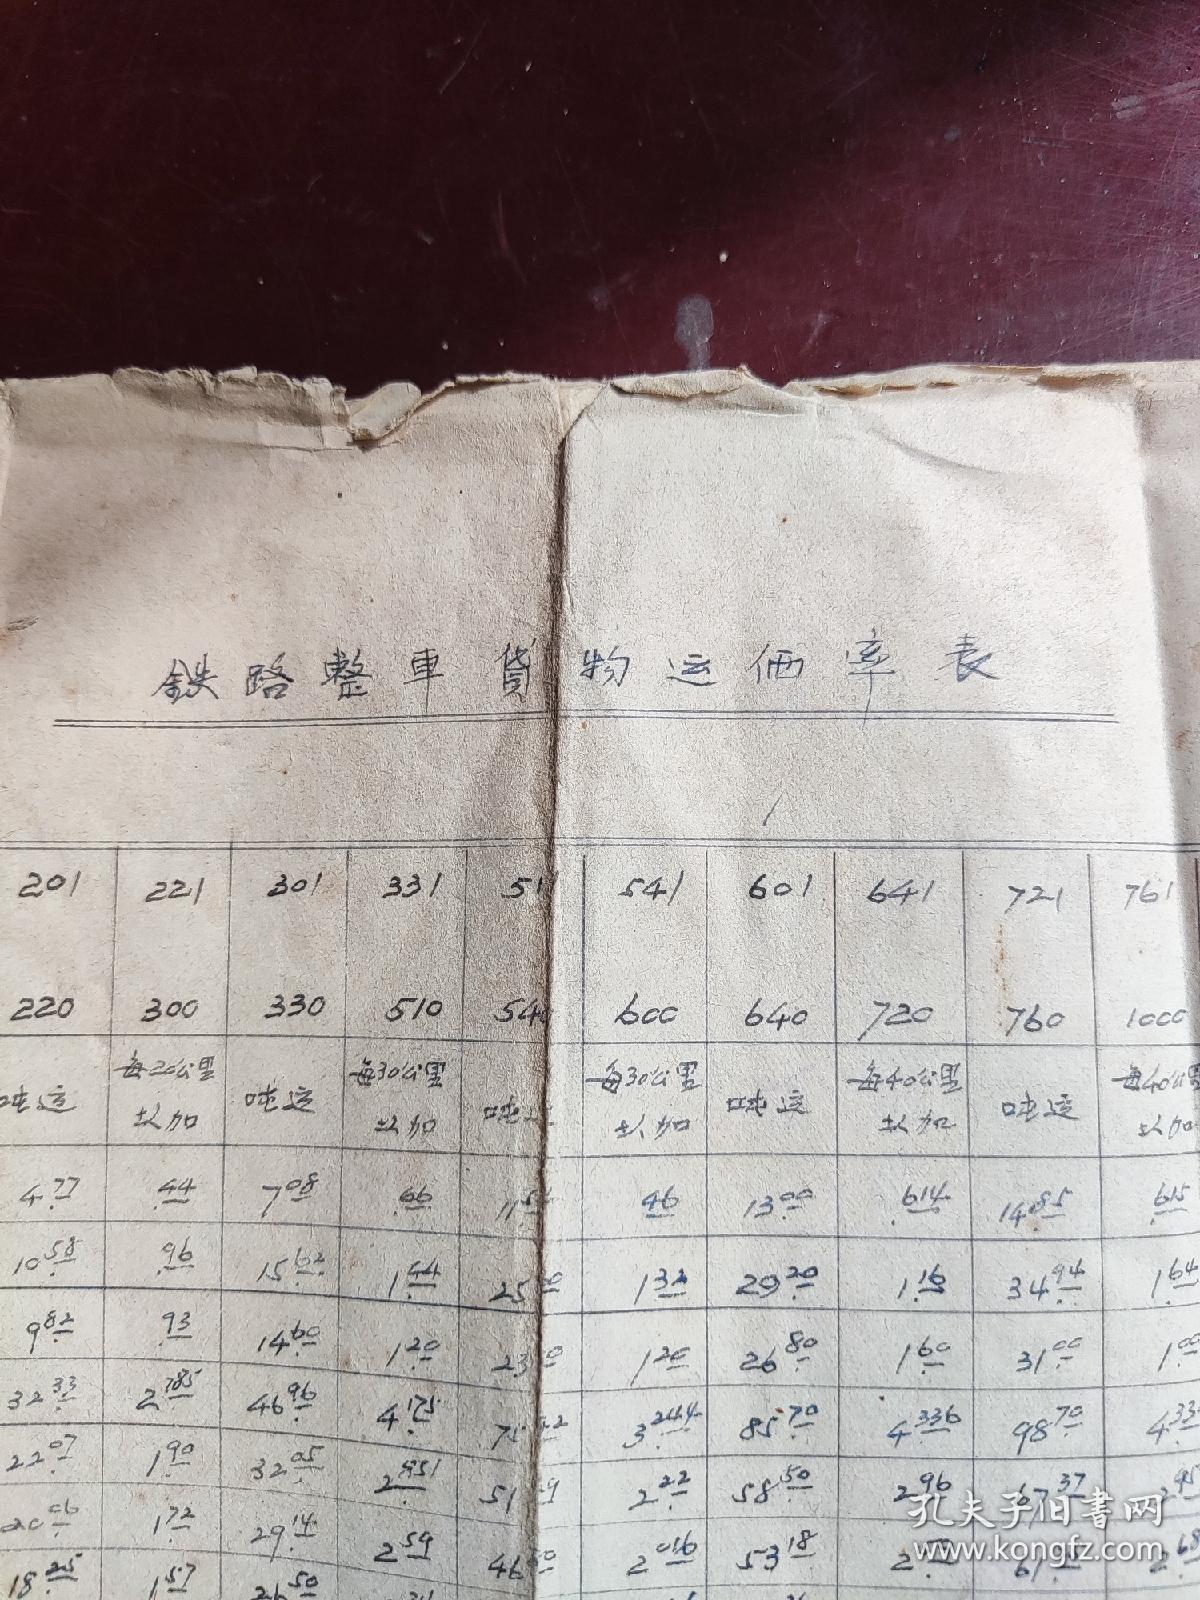 铁路整車貨物运価率表
201 221 301 331 51 541 601 641 721 761
220 300 330 510 540 600 640 720 760 1000
吨运 每20公里以加 吨运 每30公里以加 吨运 每30公里以加 吨运 每40公里以加 吨运 每40公里以加
4.77 .44 7.08 .66 11.5 .46 13.00 .614 14.85 .615
10.58 .96 15.62 1.44 25. 1.32 29.20 1.16 34.94 1.64
9.82 .93 14.60 1.20 23. 1.20 26.80 1.60 31.00 1.00
32.33 2.785 46.96 4.175 75. 3.244 85.70 4.336 98.70 4.33
22.07 1.90 32.05 2.851 51. 2.22 58.50 2.96 67.37 2.95
20.06 1.72 29.14 2.59 46. 2.016 53.18 2. 61. 2.68
18.25 1.57 26.50
孔夫子旧書网
www.kongfz.com